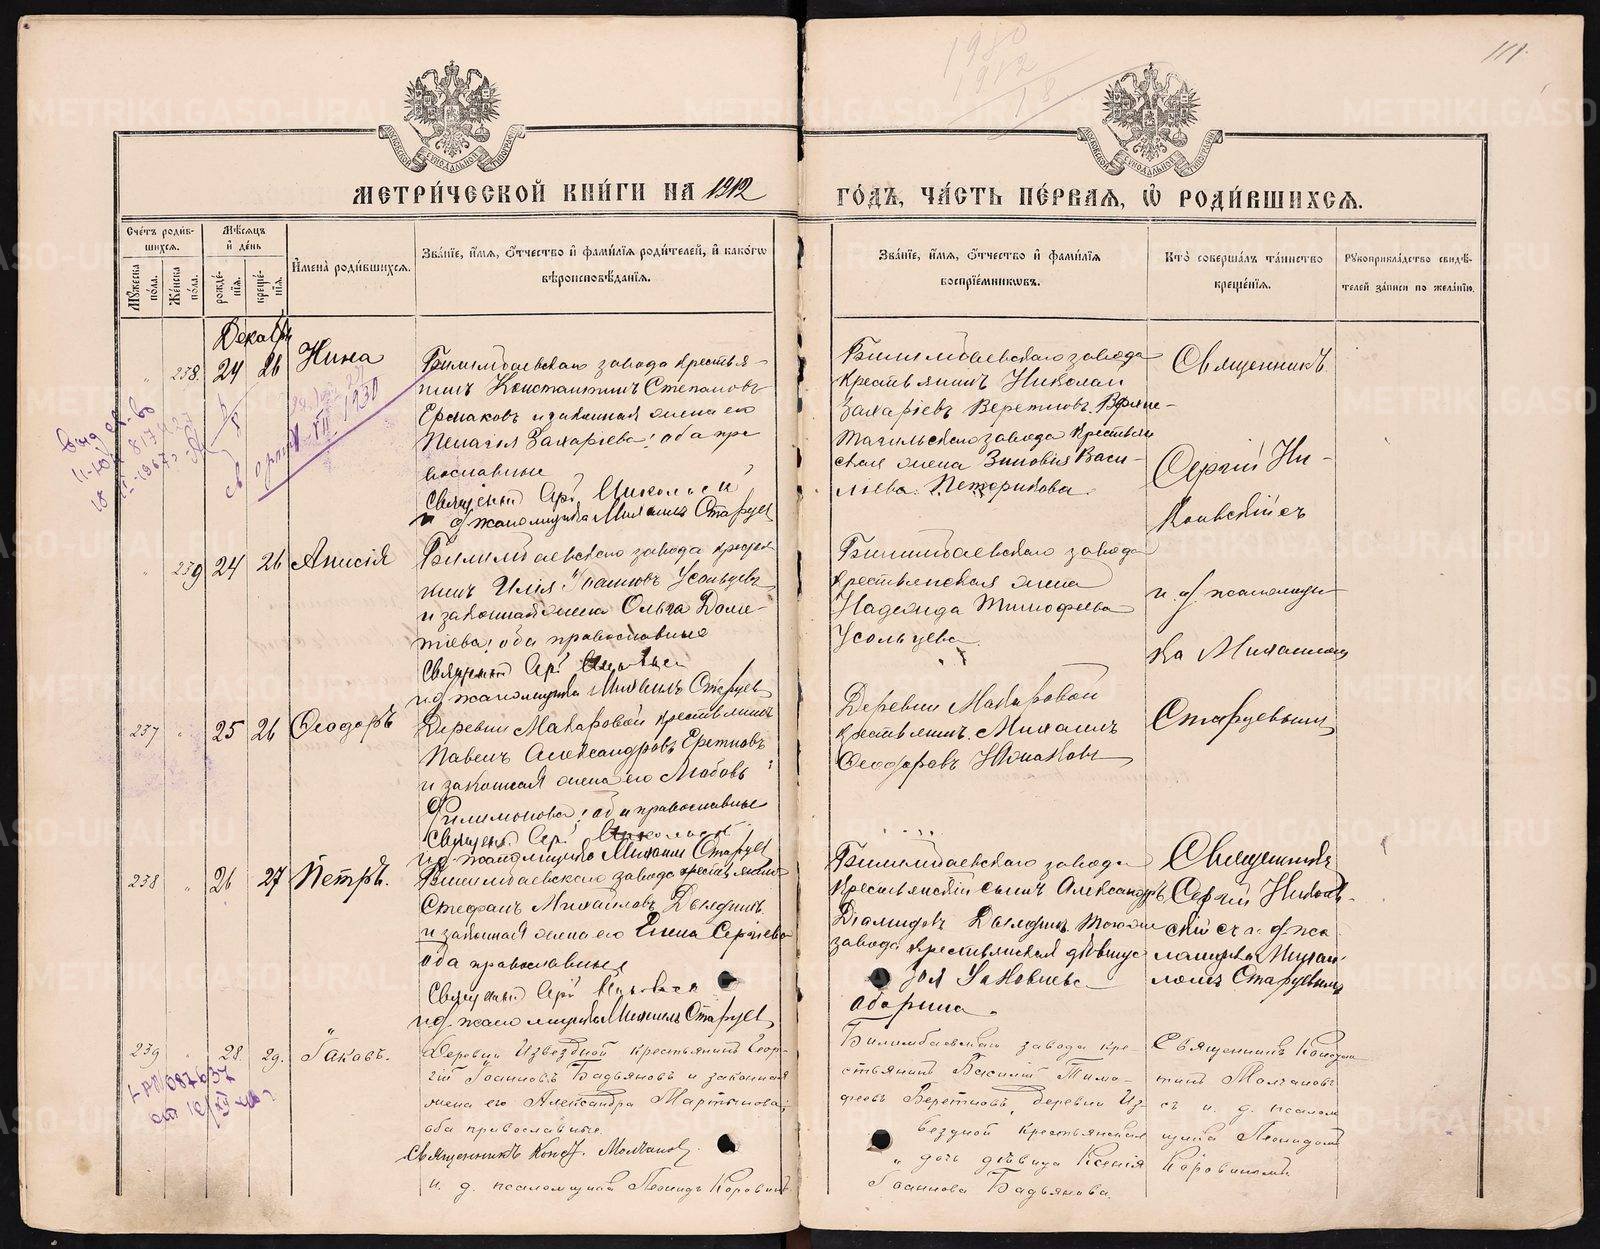 1980
1912
18
111.
МЕТРИ́ЧЕСКОЙ КНИ́ГИ НА 1912
ГО́ДЪ, ЧА́СТЬ ПЕ́РВАЯ, Ѽ РОДИ́ВШИХСѦ.
Сче́тъ роди́в-
шихсѧ.
Мѣ́сѧцъ
и҆ де́нь
Мꙋ́жеска
по́ла.
Же́нска
по́ла.
рожде́-
нїѧ.
креще́-
нїѧ.
И҆мена̀ роди́вшихсѧ.
Зва́нїе, и҆́мѧ, ѻ҆́тчество и҆ фами́лїѧ роди́телей, и҆ како́гѡ
вѣроисповѣ́данїѧ.
Зва́нїе, и҆́мѧ, ѻ҆́тчество и҆ фами́лїѧ
воспрїе́мникѡвъ.
Кто̀ соверша́лъ та́инство
креще́нїѧ.
Рꙋкоприкла́дство свидѣ́-
телей за́писи по жела́нїю.
Декабрь
238. 24 26 Нина
Билимбаевскаго завода крестья-
нинъ Константинъ Степановъ
Ермаковъ и законная жена его
Пелагія Захаріева: оба пра
вославные
Священникъ Сергій Никольскій
и. д. псаломщика Михаилъ Старцевъ
Билимбаевскаго завода
крестьянинъ Николай
Захаріевъ Веретновъ. Верхне-
Тагильскаго завода крестьян
ская жена Зиновія Васи-
ліева
Священникъ
Сергій Ни-
кольскій съ
и. д. псаломщи-
ка Михаиломъ
Старцевымъ
1930
239 24 26 Анисія
Билимбаевскаго завода крестья
нинъ Илія Іоанновъ Усольцевъ
и законная жена Ольга Доме-
тіева: оба православные
Священникъ Сергій Никольскій
и. д. псаломщика Михаилъ Старцевъ
Билимбаевскаго завода
крестьянская жена
Надежда Тимофеева
Усольцева.
237 25 26 Ѳеодоръ
Деревни Макаровой крестьянинъ
Павелъ Александровъ Еретновъ
и законная жена его Любовь
Филимонова: оба православные
Священ. Сергій Никольскій
и. д. псаломщика Михаилъ Старцевъ
Деревни Макаровой
крестьянинъ Михаилъ
Ѳеодоровъ
238 26 27 Петръ.
Билимбаевскаго завода крестьянинъ
Стефанъ Михайловъ Дылдинъ
и законная жена его Елена Сергіева
оба православные
Священникъ Сергій Никольскій
и. д. псаломщика Михаилъ Старцевъ
Билимбаевскаго завода
крестьянскій сынъ Александръ
Діамидовъ Дылдинъ
завода крестьянская дѣвица
Зоя Іаковлева
Оборина.
Священникъ
Сергій Николь-
скій съ и. д. пса
ломщика Михаи-
ломъ Старцевымъ
239 28. 29. Іаковъ.
Деревни Извездной крестьянинъ Геор-
гій Іоанновъ Бадьяновъ и законная
жена его Александра Мартынова:
оба православные.
Священникъ Конст. Молчановъ.
и. д. псаломщика Леонидъ Коровинъ.
Билимбаевскаго завода кре-
стьянинъ Василій Тимо-
феевъ Веретновъ, деревни Из-
вездной крестьянская
дочь дѣвица Ксенія
Іоаннова Бадьянова.
Священникъ Констан
тинъ Молчановъ
съ и. д. псалом
щика Леонидомъ
Коровинымъ.
METRIKI.GASO-URAL.RU